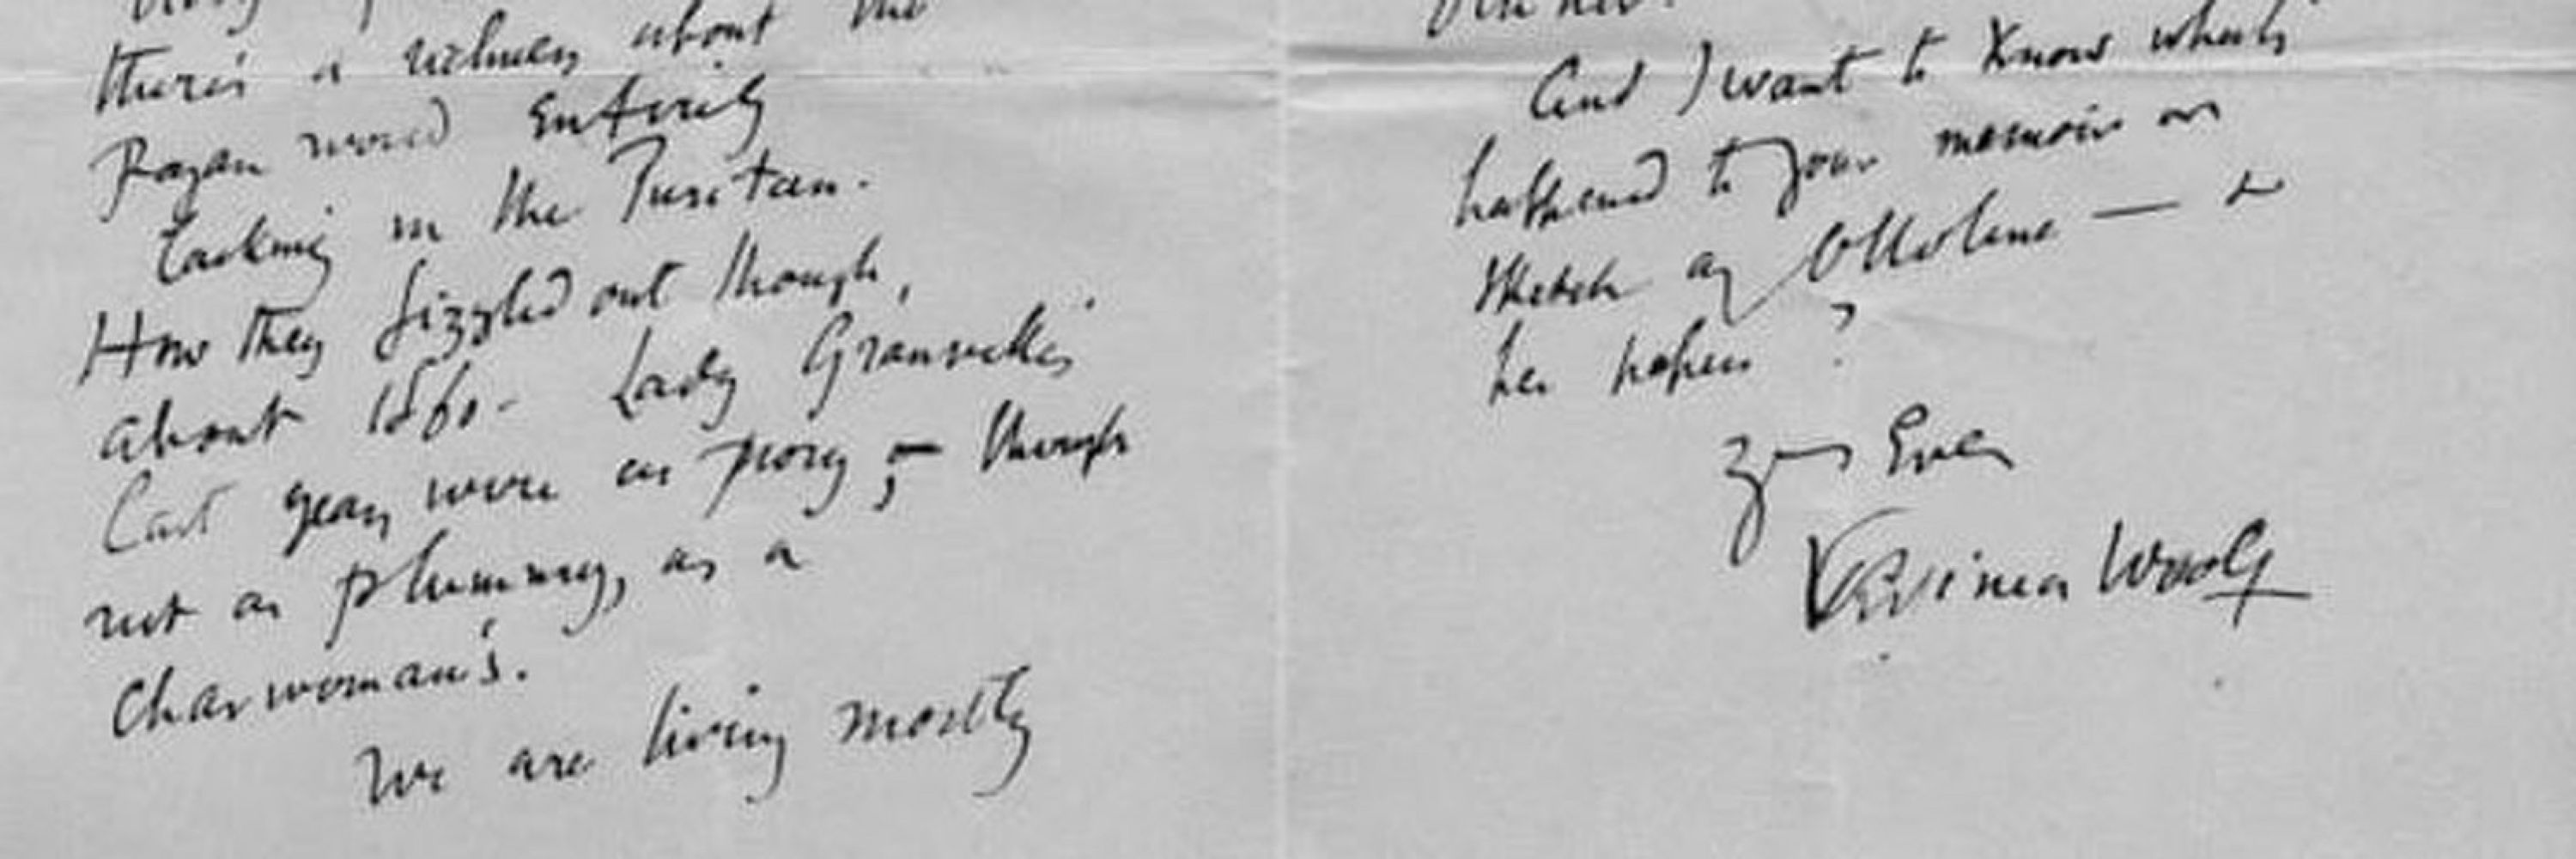 there's a richness about the
Pagan world entirely
lacking in the Puritan.
How they fizzled out though,
about 1860 - Lady Granville's
last years were as prosy ; — though
not as plummy, as a
charwoman's.
We are living mostly
dinner.
And I want to know what's
happened to your memoir or
sketch of Ottoline — &
her papers ?
Yrs Ever
Virginia Woolf